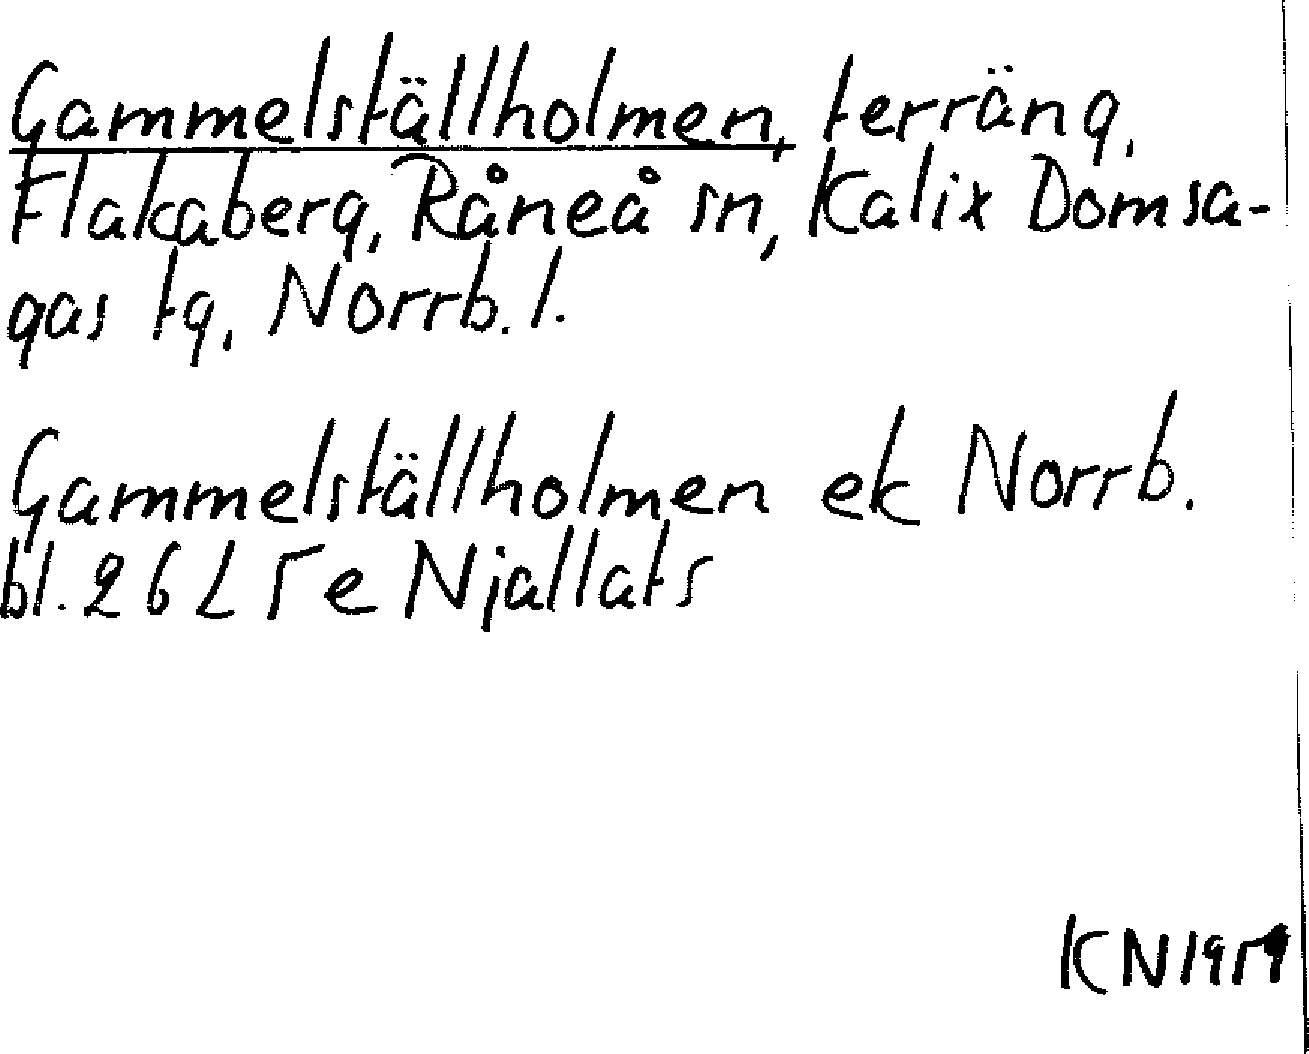 Gammelställholmen, terräng,
Flakaberg, Råneå sn, Kalix Domsa-
gas tg, Norrb. l.
Gammelställholmen ek Norrb.
bl. 26 L 5 e Njallats
KN 1959